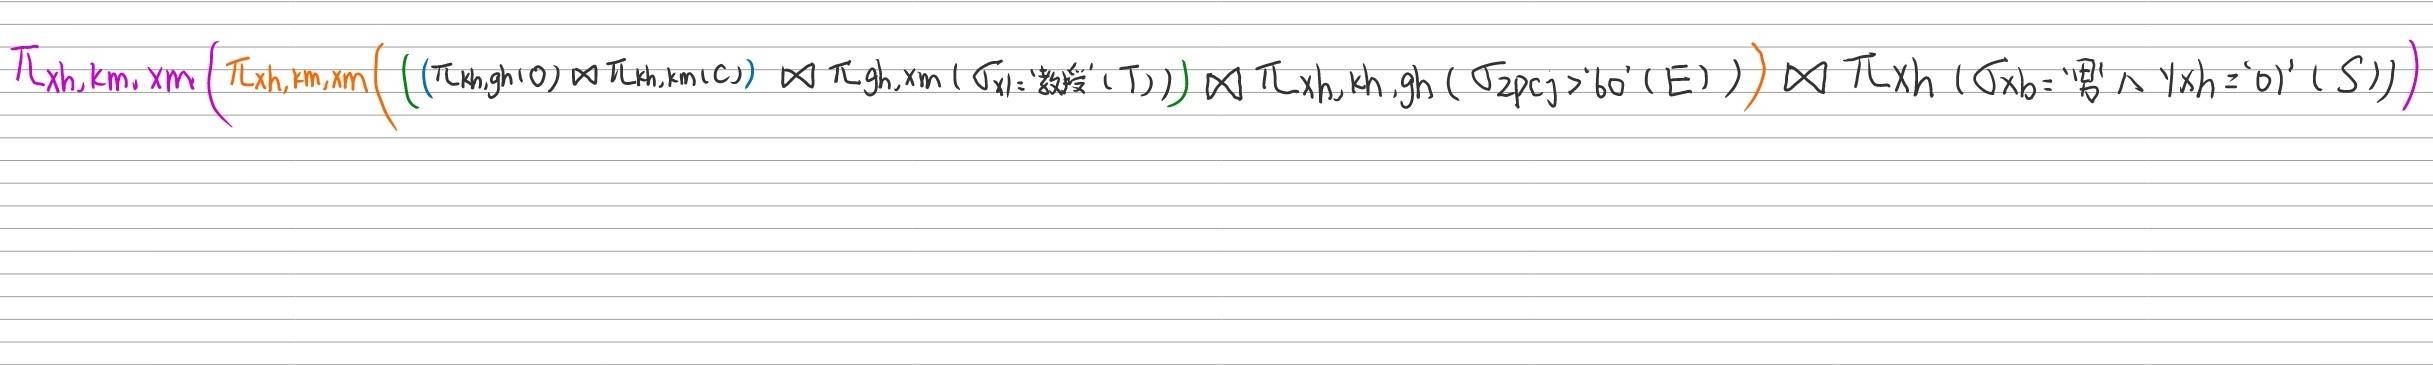 π xh,km,xm (π xh,km,xm (((π kh,gh(O) ⋈ π kh,km(C)) ⋈ π gh,xm (σ xl='教授' (T))) ⋈ π xh,kh,gh (σ zpcj>'60' (E))) ⋈ π xh (σ xb='男' ∧ yxh='01' (S)))